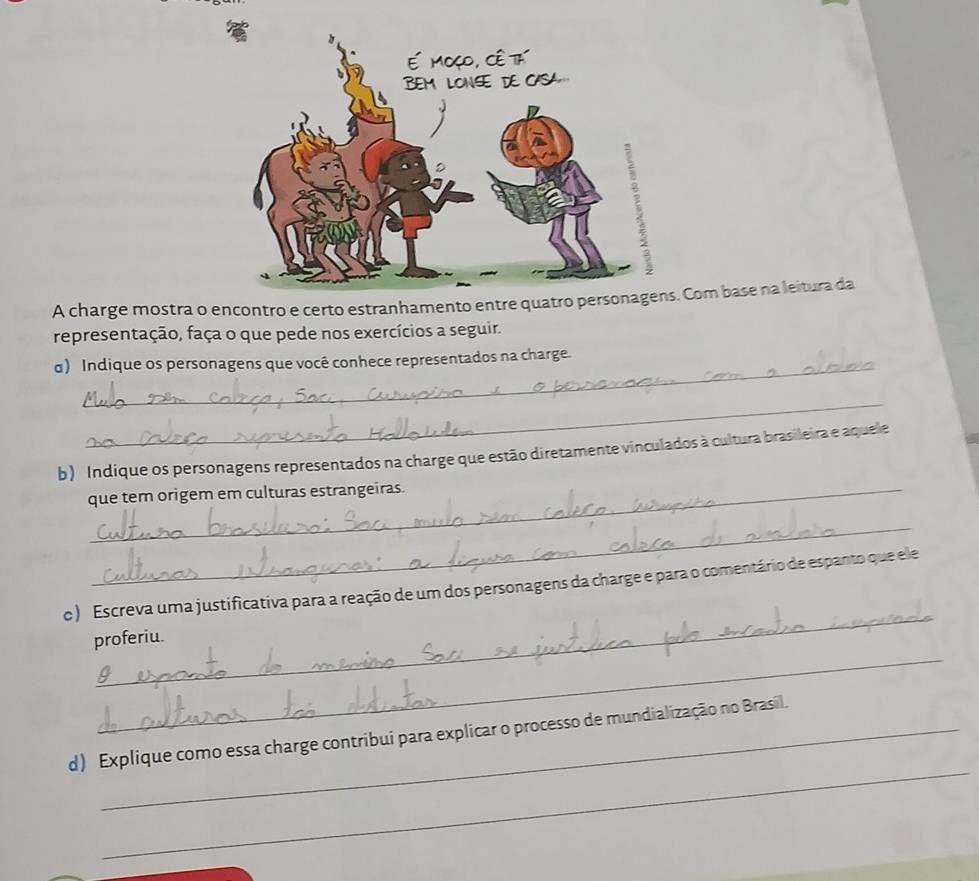 É MOÇO, CÊ TÁ
BEM LONGE DE CASA...
Nando Motta/Acervo do cartunista
A charge mostra o encontro e certo estranhamento entre quatro personagens. Com base na leitura da
representação, faça o que pede nos exercícios a seguir.
a) Indique os personagens que você conhece representados na charge.
Mula sem cabeça, Saci, Curupira e o personagem com a abóbora
na cabeça representa Halloween
b) Indique os personagens representados na charge que estão diretamente vinculados à cultura brasileira e aquele
que tem origem em culturas estrangeiras.
Cultura brasileira: Saci, mula sem cabeça, curupira
culturas estrangeiras: a figura com cabeça de abóbora
c) Escreva uma justificativa para a reação de um dos personagens da charge e para o comentário de espanto que ele
proferiu.
O espanto do menino Saci se justifica pelo encontro inesperado
de culturas tão distintas
d) Explique como essa charge contribui para explicar o processo de mundialização no Brasil.